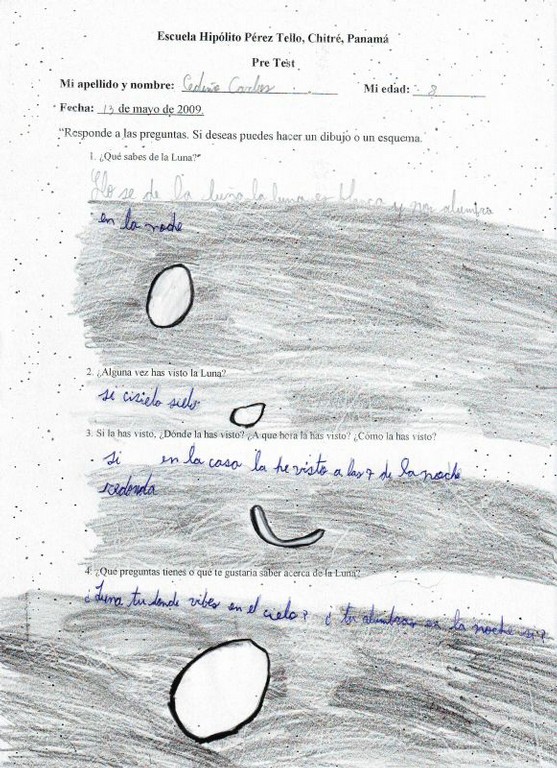 Escuela Hipólito Pérez Tello, Chitré, Panamá
Pre Test
Mi apellido y nombre: Cedeño Carlos Mi edad: 8
Fecha: 13 de mayo de 2009.
"Responde a las preguntas. Si deseas puedes hacer un dibujo o un esquema.
1. ¿Qué sabes de la Luna?"
Yo se de la luna la luna es blanca y nos alumbra
en la noche
2. ¿Alguna vez has visto la Luna?
si
3. Si la has visto, ¿Dónde la has visto? ¿A que hora la has visto? ¿Cómo la has visto?
si en la casa la he visto a las 7 de la noche
redonda
4. ¿Qué preguntas tienes o qué te gustaria saber acerca de la Luna?
¿Luna tu donde vibes en el cielo? ¿ tu alumbras en la noche si?